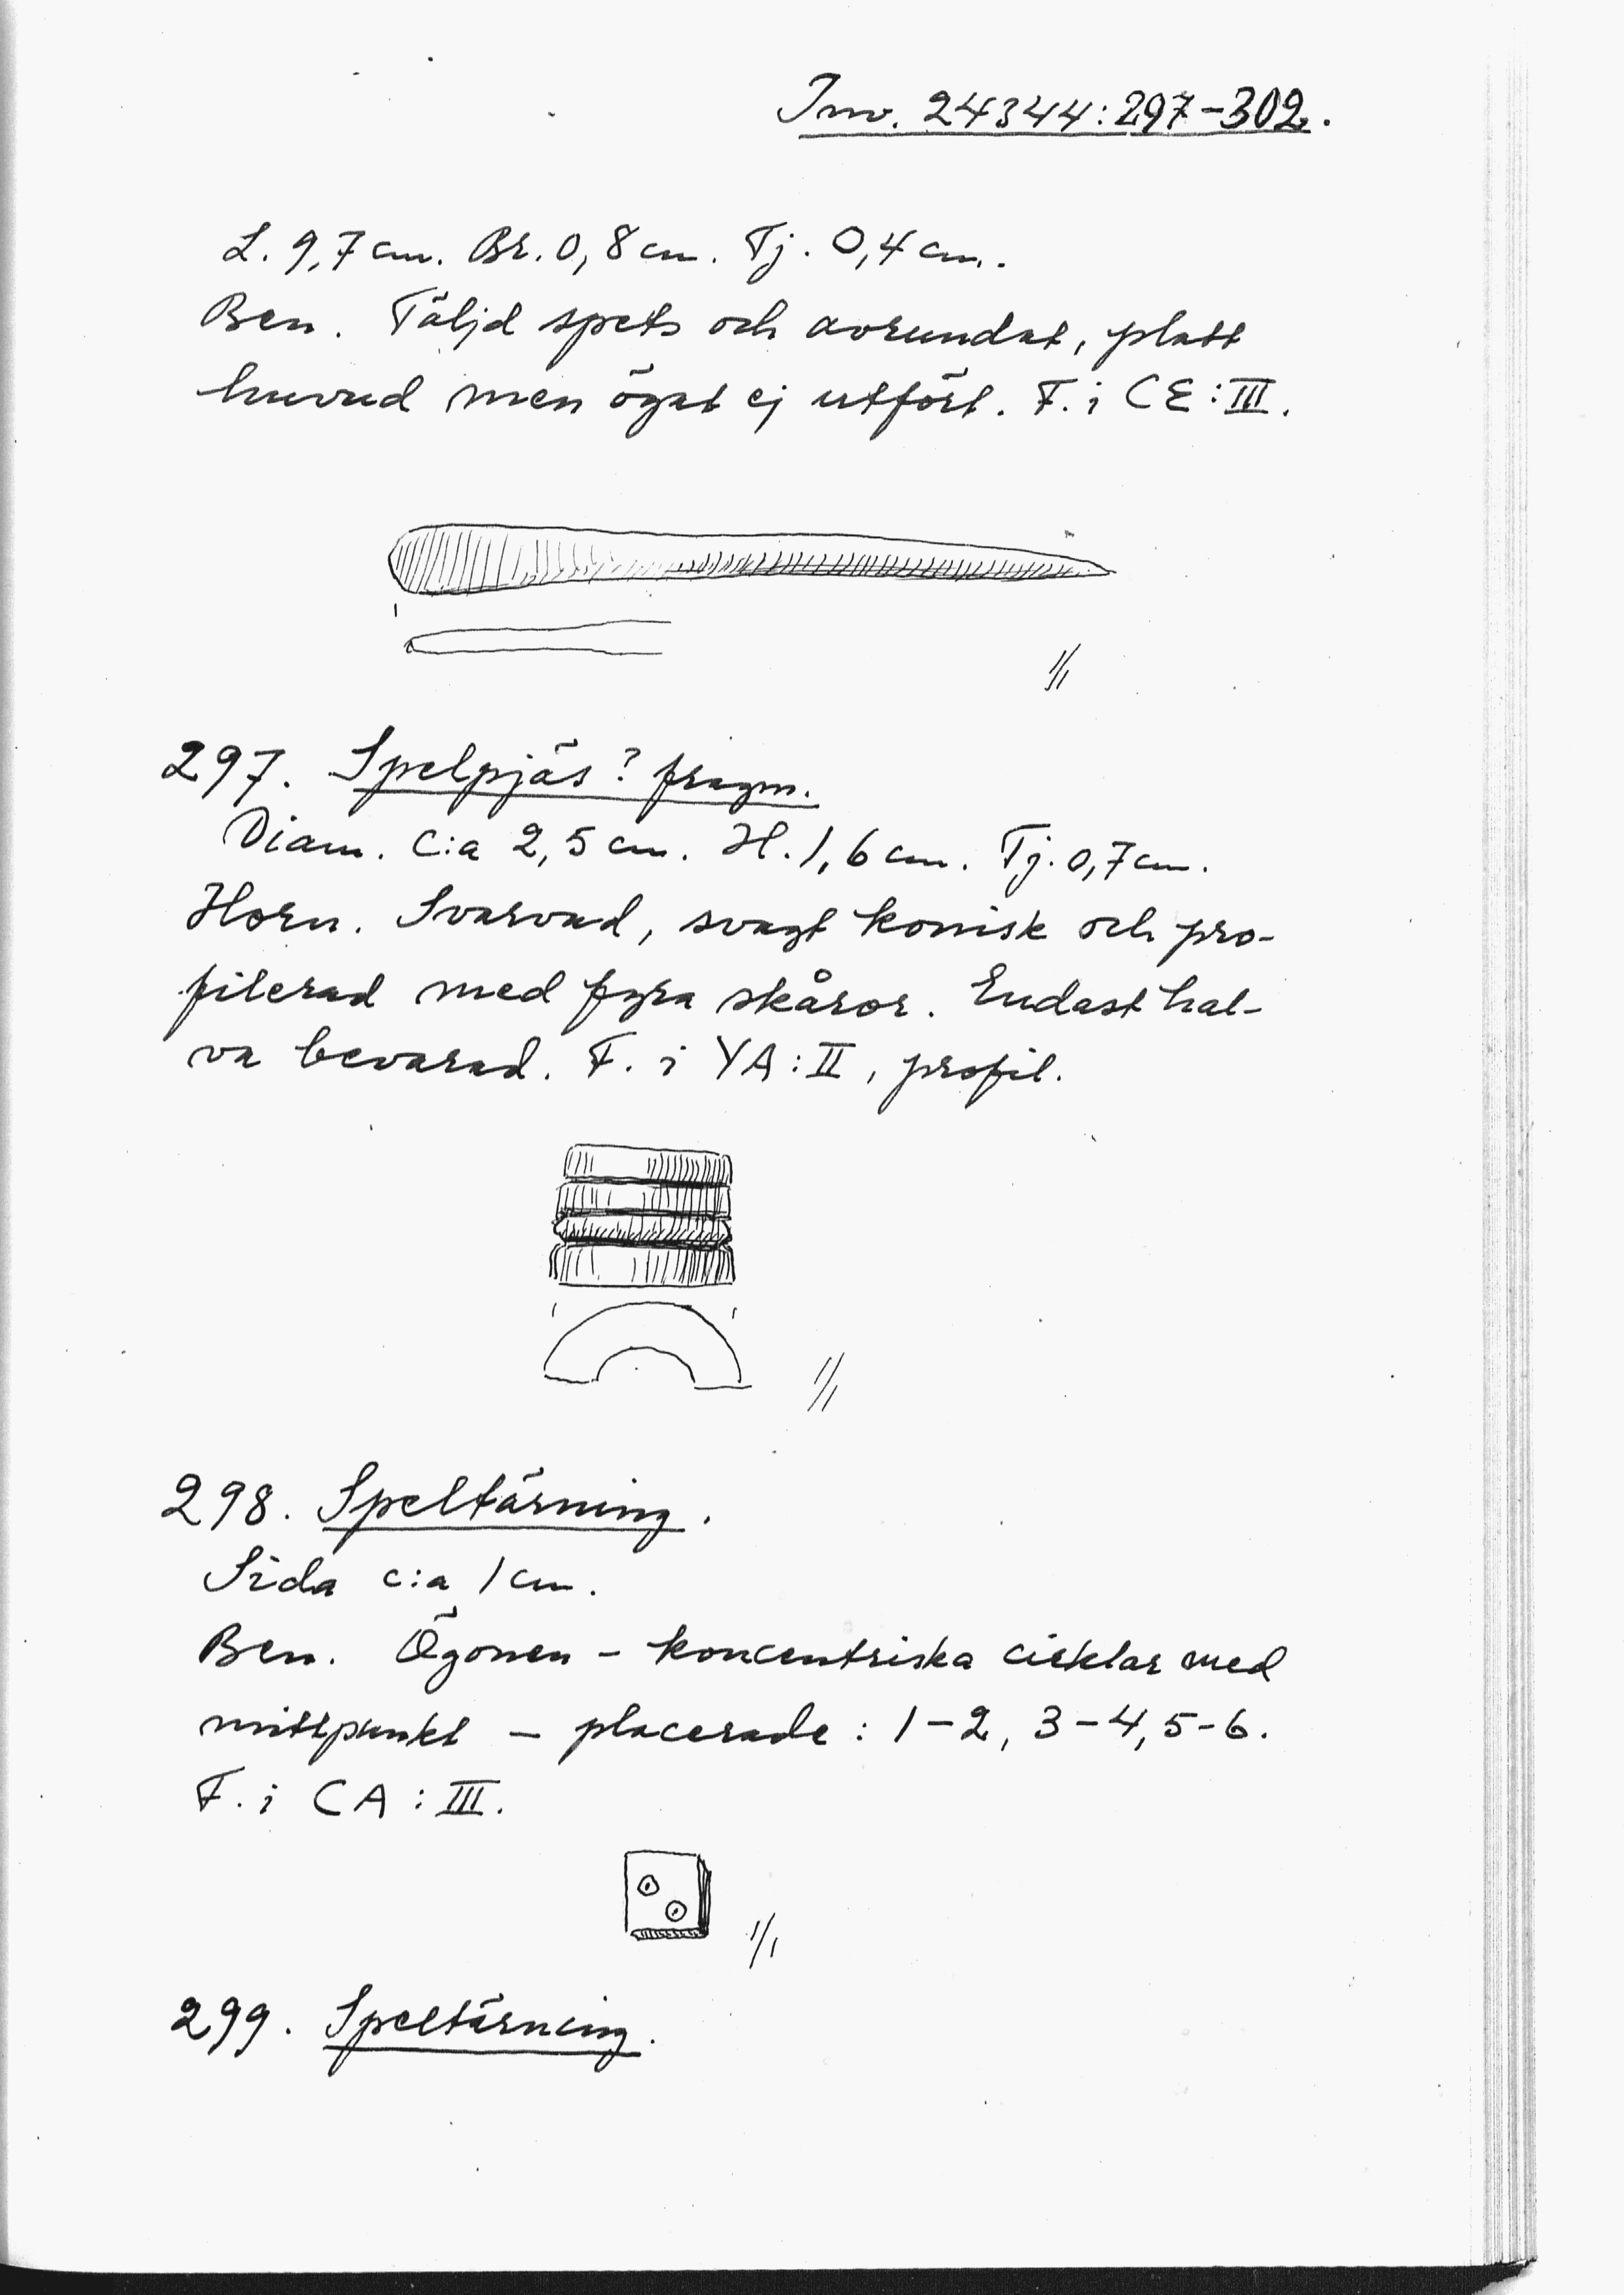 Inv. 24344:297-302.
L. 9,7 cm. Br. 0,8 cm. Tj. 0,4 cm.
Ben. Täljd spets och avrundat, platt
huvud men ögat ej utfört. F. i CE:III.
1/1
297. Spelpjäs? fragm.
Diam. c:a 2,5 cm. H. 1,6 cm. Tj. 0,7 cm.
Horn. Svarvad, svagt konisk och pro-
filerad med fyra skåror. Endast hal-
va bevarad. F. i YA:II, profil.
1/1
298. Speltärning.
Sida c:a 1 cm.
Ben. Ögonen - koncentriska cirklar med
mittpunkt - placerade: 1-2, 3-4, 5-6.
F. i CA:III.
1/1
299. Speltärning.